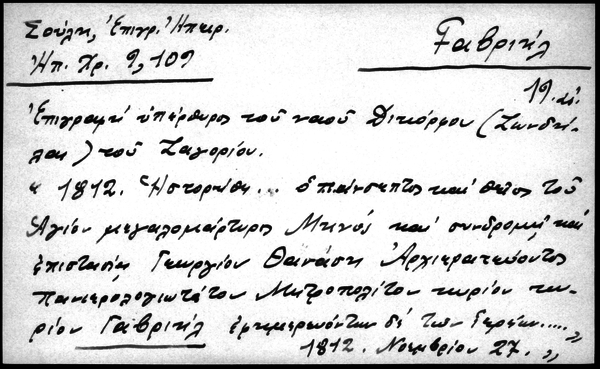 Σούλη, Ἐπιγρ. Ἠπειρ.
Ἠπ. Χρ. 9, 109
Γαβριήλ
19. αἰ.
Ἐπιγραφὴ ὑπέρθυρος τοῦ ναοῦ Δικόρφου (Ζωνδή-
λαι) τοῦ Ζαγορίου.
"1812. Ἡστορήθη... ὁ πάνσεπτος καὶ θεῖος τοῦ
Ἁγίου μεγαλομάρτυρος Μηνᾶ καὶ συνδρομῇ καὶ
ἐπιστασίᾳ Γεωργίου Θανάση Ἀρχιερατεύοντος
πανιερολογιωτάτου Μητροπολίτου κυρίου κυ-
ρίου Γαβριήλ ἐφημερευόντων δὲ των Ἱερέων.....
1812. Νοεμβρίου 27."